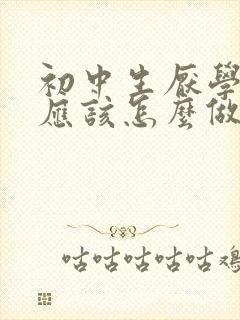 初中生厌學
應該怎麼做
咕咕咕咕咕鸡